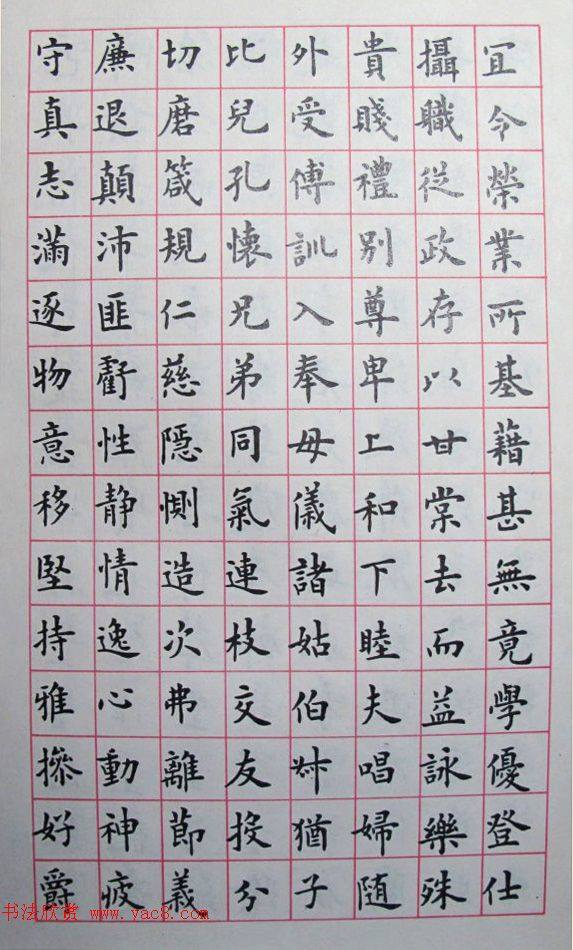 冝令榮業所基藉甚無竟學優登仕
攝職從政存以甘棠去而益詠樂殊
貴賤禮別尊卑上和下睦夫唱婦隨
外受傅訓入奉母儀諸姑伯叔猶子
比兒孔懷兄弟同氣連枝交友投分
切磨箴規仁慈隱惻造次弗離莭義
廉退顛沛匪虧性静情逸心動神疲
守真志滿逐物意移堅持雅摻好爵
书法欣赏 www.yac8.com